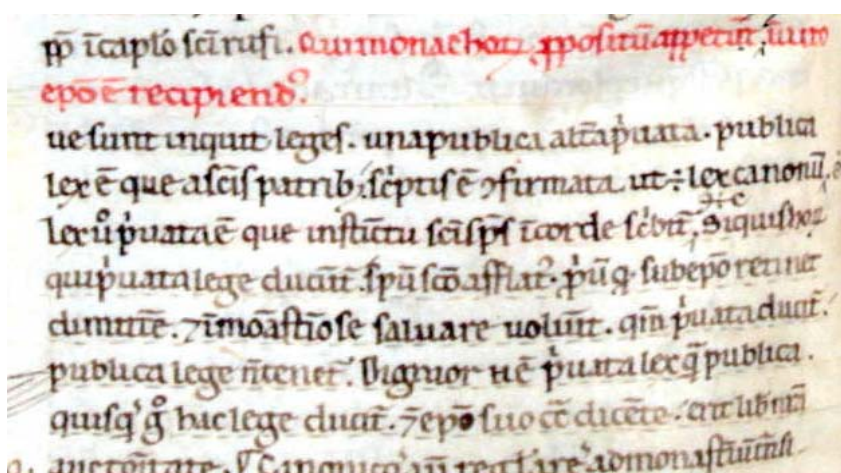 pp̄ īcaplo sc̄i rufi. Qui monachoꝝ ꝓpositū appetīt
ep̄o ē recipiendꝰ.
ue sunt inquit leges. una publica alt̄a p͛uata. publica
lex ē que a sc̄is patribꝫ sc͛ptis ē ꝯfirmata ut ÷ lex canonū.
lex ů p͛uata ē que instinctu sc̄i sp̄s ī corde sc͛bit̄. Siquis hoꝝ
qui p͛uata lege ducit̄. sp̄u sc̄o afflatꝰ. sub ep̄o retinet
dimittē. ⁊ ī monast̄io se saluare uolūit. qm̄ p͛uata ducit̄.
publica lege n̄ tenet̄. Dignior ē p͛uata lex q̄ publica.
quisqꝫ g̊ hac lege ducit̄. ⁊ ep̄o suo ꝯ̄t dicēte. erit lib̄ nr̄i
auctoritate. ¶ Canonicꝰ